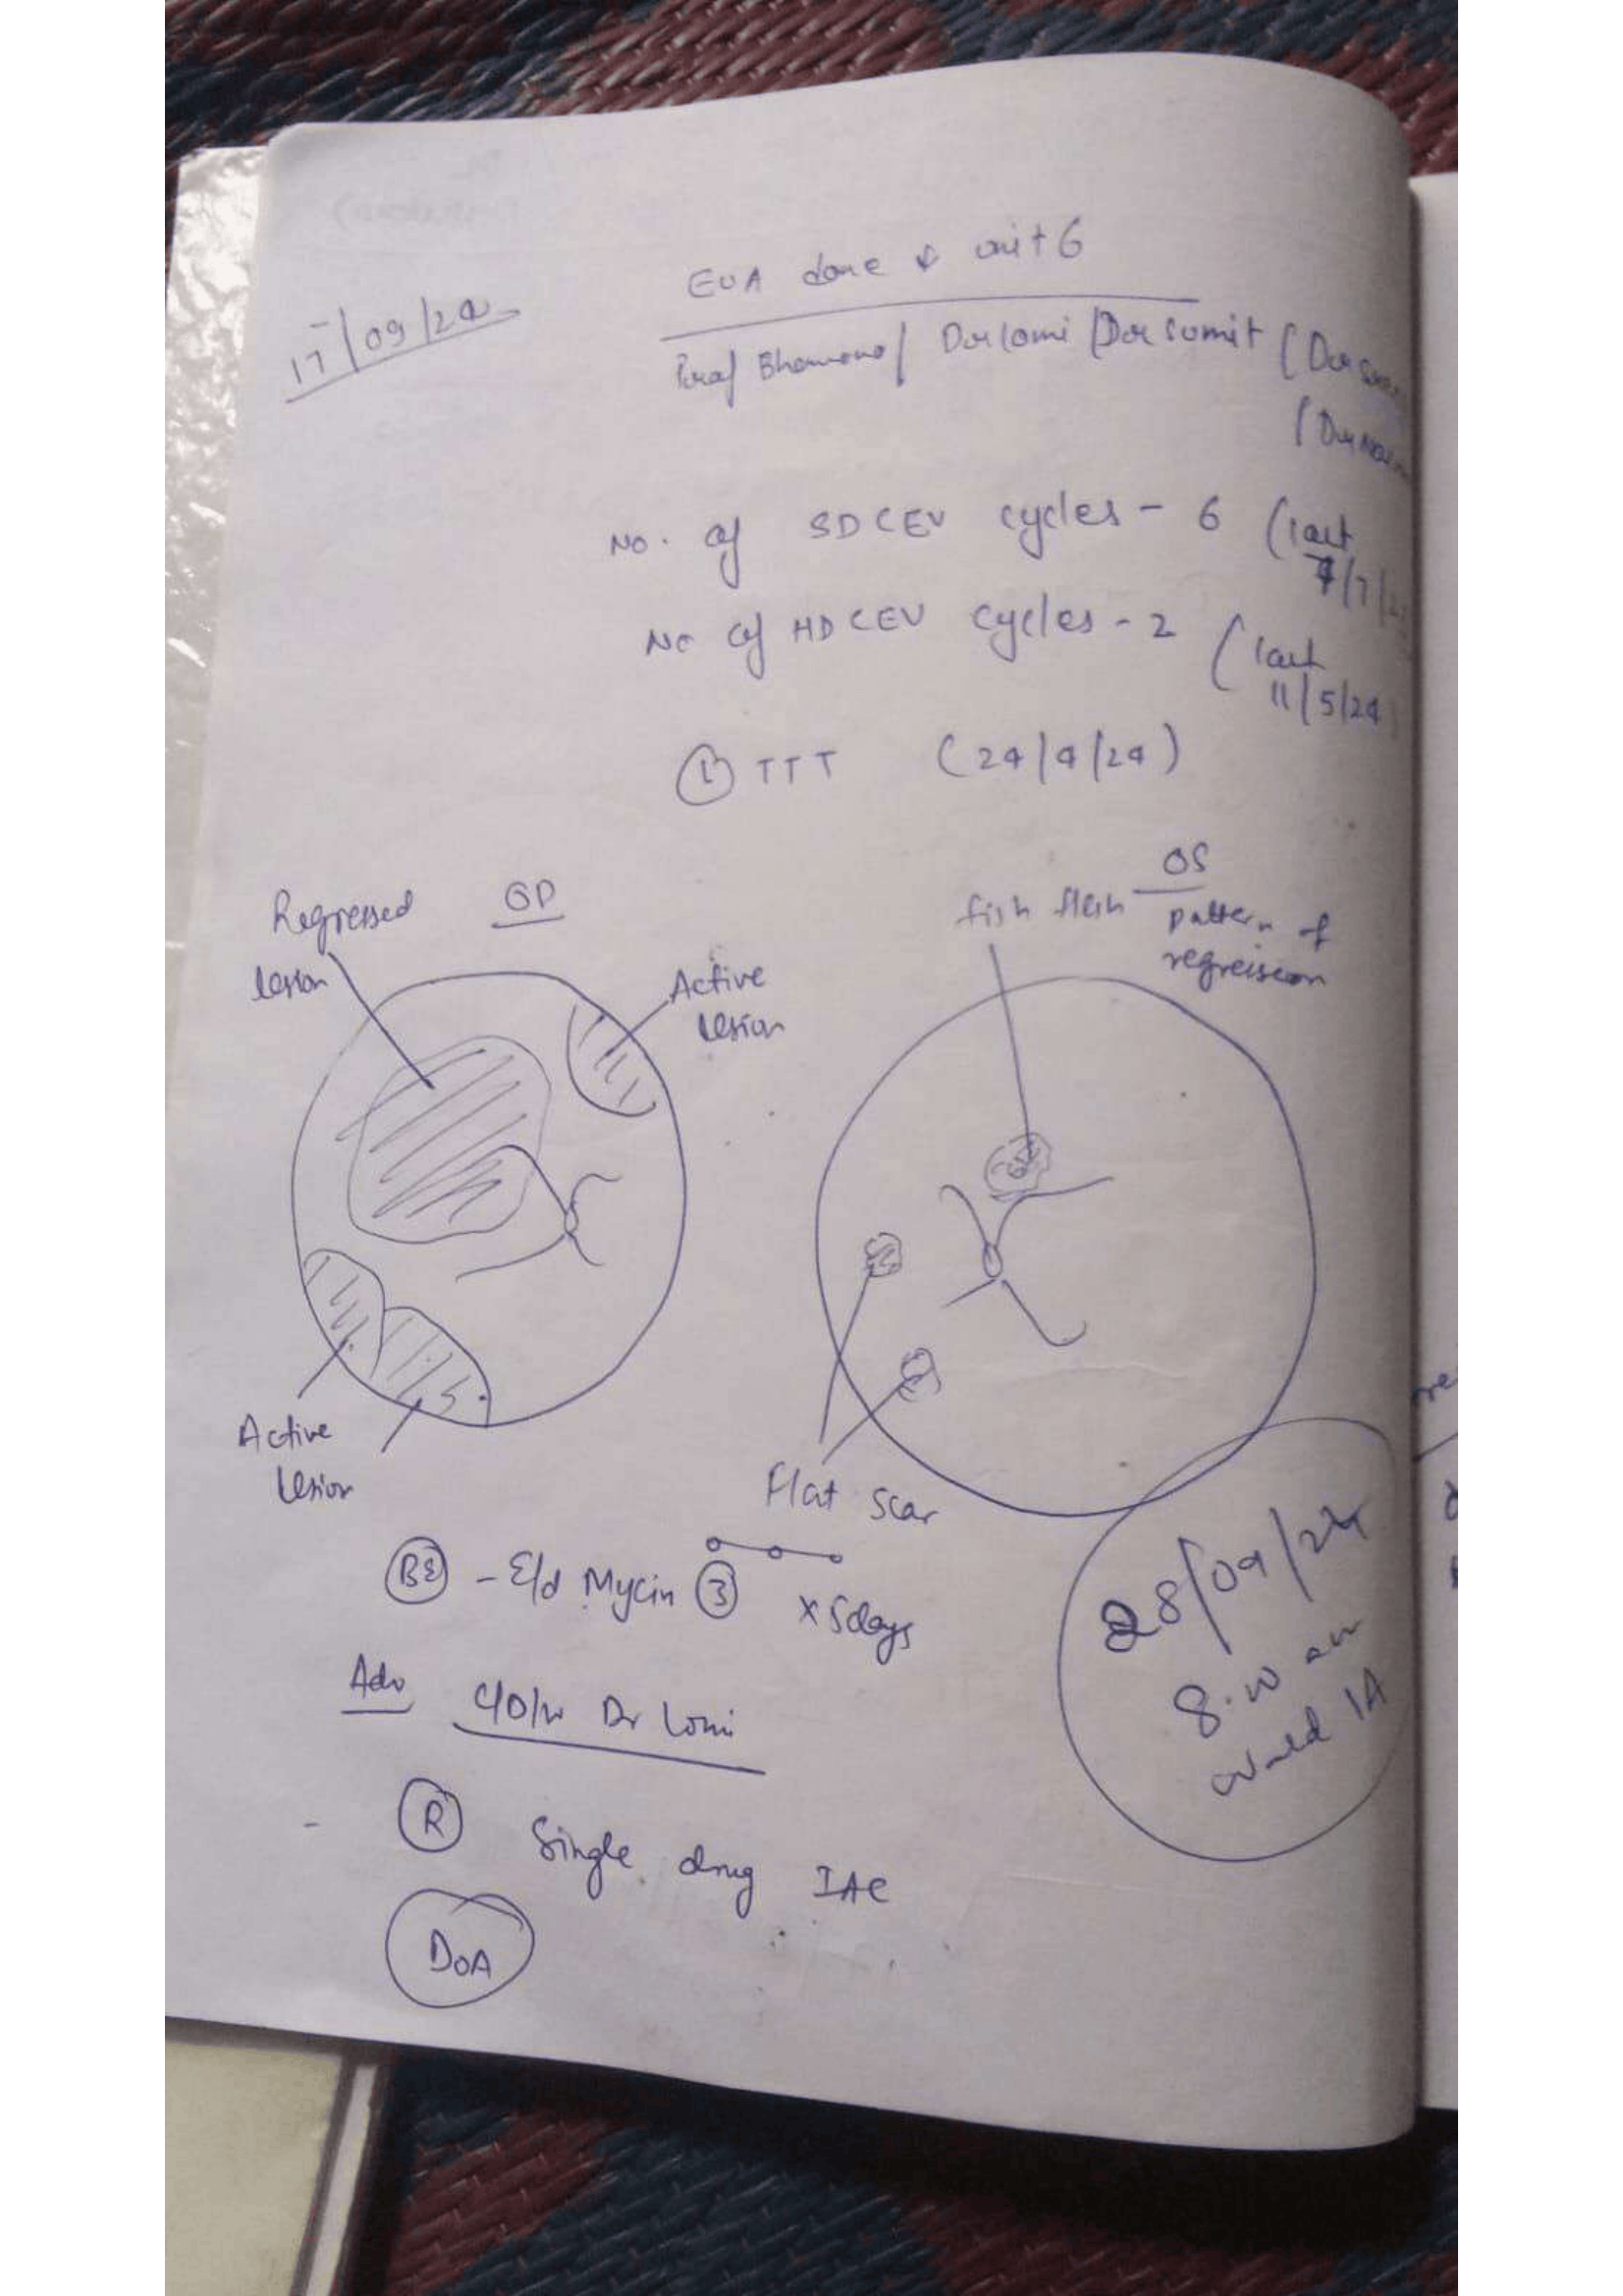 17/09/24
EUA done unit 6
Prof Bhawana / Dr Lomi / Dr Sumit / Dr
No. of SDCEV cycles - 6 (last
7/7/2
No of HDCEV cycles - 2 (last
11/5/24)
① TTT (24/4/24)
OD
Regressed
lesion
Active
lesion
OS
fish flesh pattern of
regression
Active
lesion
Flat scar
BE - E/d Mycin ③
x 5days
Adv C/D/w Dr Lomi
R Single drug IAC
DOA
28/09/24
8.00 am
IA